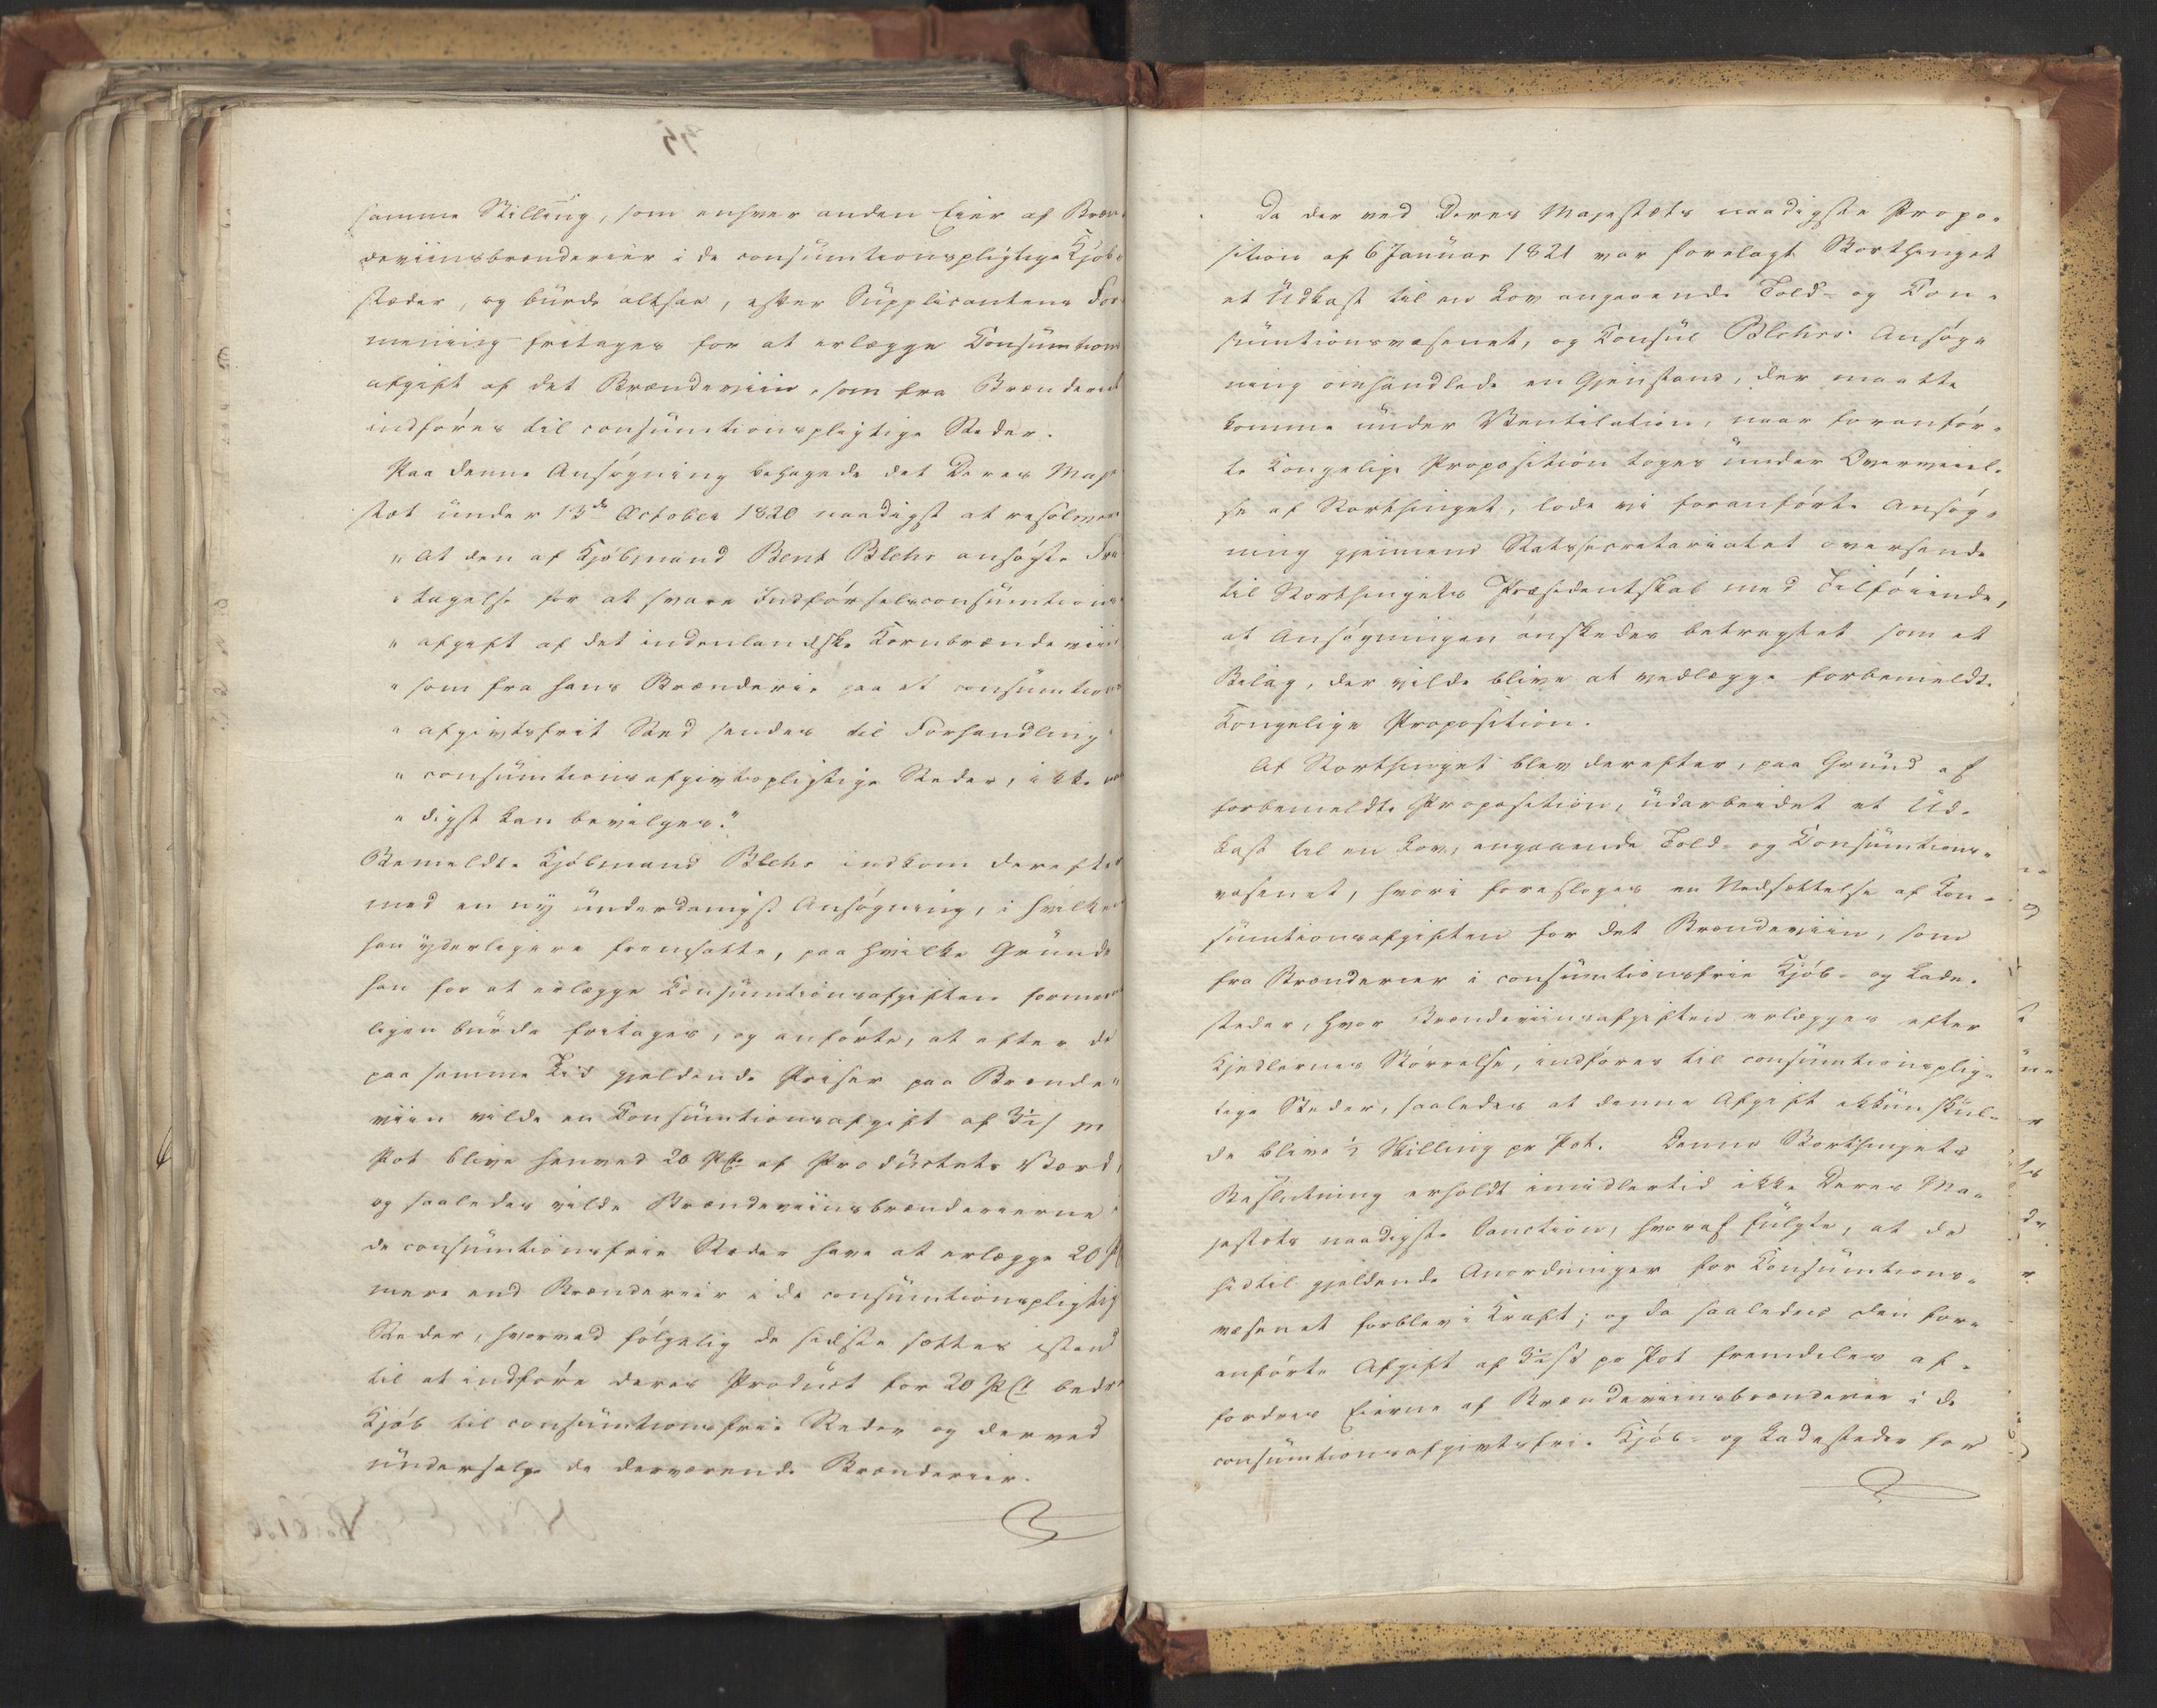 samme Stilling, som enhver anden Eier af Bræn-
deviinsbrænderier i de consumtionspligtige Kjøb-
stæder, og burde altsaa, efter Supplicantens For-
mening fritages for at erlægge Consumtions
afgift af det Brændeviin, som fra Brænderiet
indføres til consumtionspligtige Steder.
Paa denne Ansøgning behagede det Deres Maje
stæt under 13de October 1820 naadigst at resolvere
"At den af Kjøbmand Bent Blehr ansøgte Fri
"tagelse for at svare Indførselsconsumtions
"afgift af det indenlandske Kornbrændeviin
"som fra hans Brænderie paa et consumtions
"afgivtsfrit Sted sendes til Forhandling i
"consumtionsafgivtspligtige Steder, ikke naa
"digst kan bevilges."
Bemeldte Kjøbmand Blehr indkom derefter
med en ny underdanigst Ansøgning, i hvilken
han yderligere fremsatte, paa hvilke Grunde
han for at erlægge Consumtionsafgiften formeent
ligen burde fritages, og anførte, at efter de
paa samme Tid gjeldende Priser paa Brænde-
viin vilde en Consumtionsafgift af 3½ s pr
Pot blive henved 20 PCt. af Productets Værd,
og saaledes vilde Brændeviinsbrænderierne i
de consumtionsfrie Stæder have at erlægge 20 PCt
mere end Brænderier i de consumtionspligtige
Steder, hvorved følgelig de sidste sættes istand
til at indføre deres Product for 20 PCt bedre
Kjøb til consumtionsfrie Steder og derved
undersælge de derværende Brænderier.
Da der ved Deres Majestæts naadigste Propo-
sition af 6 Januar 1821 var forelagt Storthinget
et Udkast til en Lov angaaende Told- og Con-
sumtionsvæsenet, og Consul Blehrs Ansøg-
ning omhandlede en Gjenstand, der maatte
komme under Ventilation, naar foranfør-
te Kongelige Proposition toges under Overveiel-
se af Storthinget, lode vi foranførte Ansøg-
ning gjennem Statssecretariatet oversende
til Storthingets Præsidentskab med Tilføiende,
at Ansøgningen ønskedes betragtet som et
Bilag, der vilde blive at vedlægge forbemeldte
Kongelige Proposition.
Af Storthinget blev derefter, paa Grund af
forbemeldte Proposition, udarbeidet et Ud-
kast til en Lov, angaaende Told- og Consumtions-
væsenet, hvori foresloges en Nedsættelse af Con-
sumtionsafgiften for det Brændeviin, som
fra Brænderier i consumtionsfrie Kjøb- og Lade-
steder, hvor Brændeviinsafgiften erlægges efter
Kjedlernes Størrelse, indføres til consumtionsplig-
tige Steder, saaledes at denne Afgift ikkun skul-
de blive ½ Skilling pr Pot. Denne Storthingets
Beslutning erholdt imidlertid ikke Deres Ma-
jestæts naadigste Sanction, hvoraf fulgte, at de
hidtil gjeldende Anordninger for Consumtions-
væsenet forblev i Kraft; og da saaledes den for-
anførte Afgift af 3½ s pr Pot fremdeles af-
fordres Eierne af Brændeviinsbrænderier i de
consumtionsafgivtsfrie Kjøb- og Ladesteder for